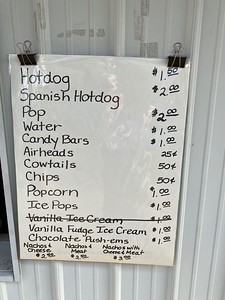 Hotdog $1.50
Spanish Hotdog $2.00
Pop $2.00
Water $1.00
Candy Bars $1.00
Airheads 25¢
Cowtails 50¢
Chips 50¢
Popcorn $1.00
Ice Pops $1.00
Vanilla Ice Cream $1.00
Vanilla Fudge Ice Cream $1.00
Chocolate Push-ems $1.00
Nachos & Cheese $2.00
Nachos & Meat $2.00
Nachos with Cheese & Meat $3.00